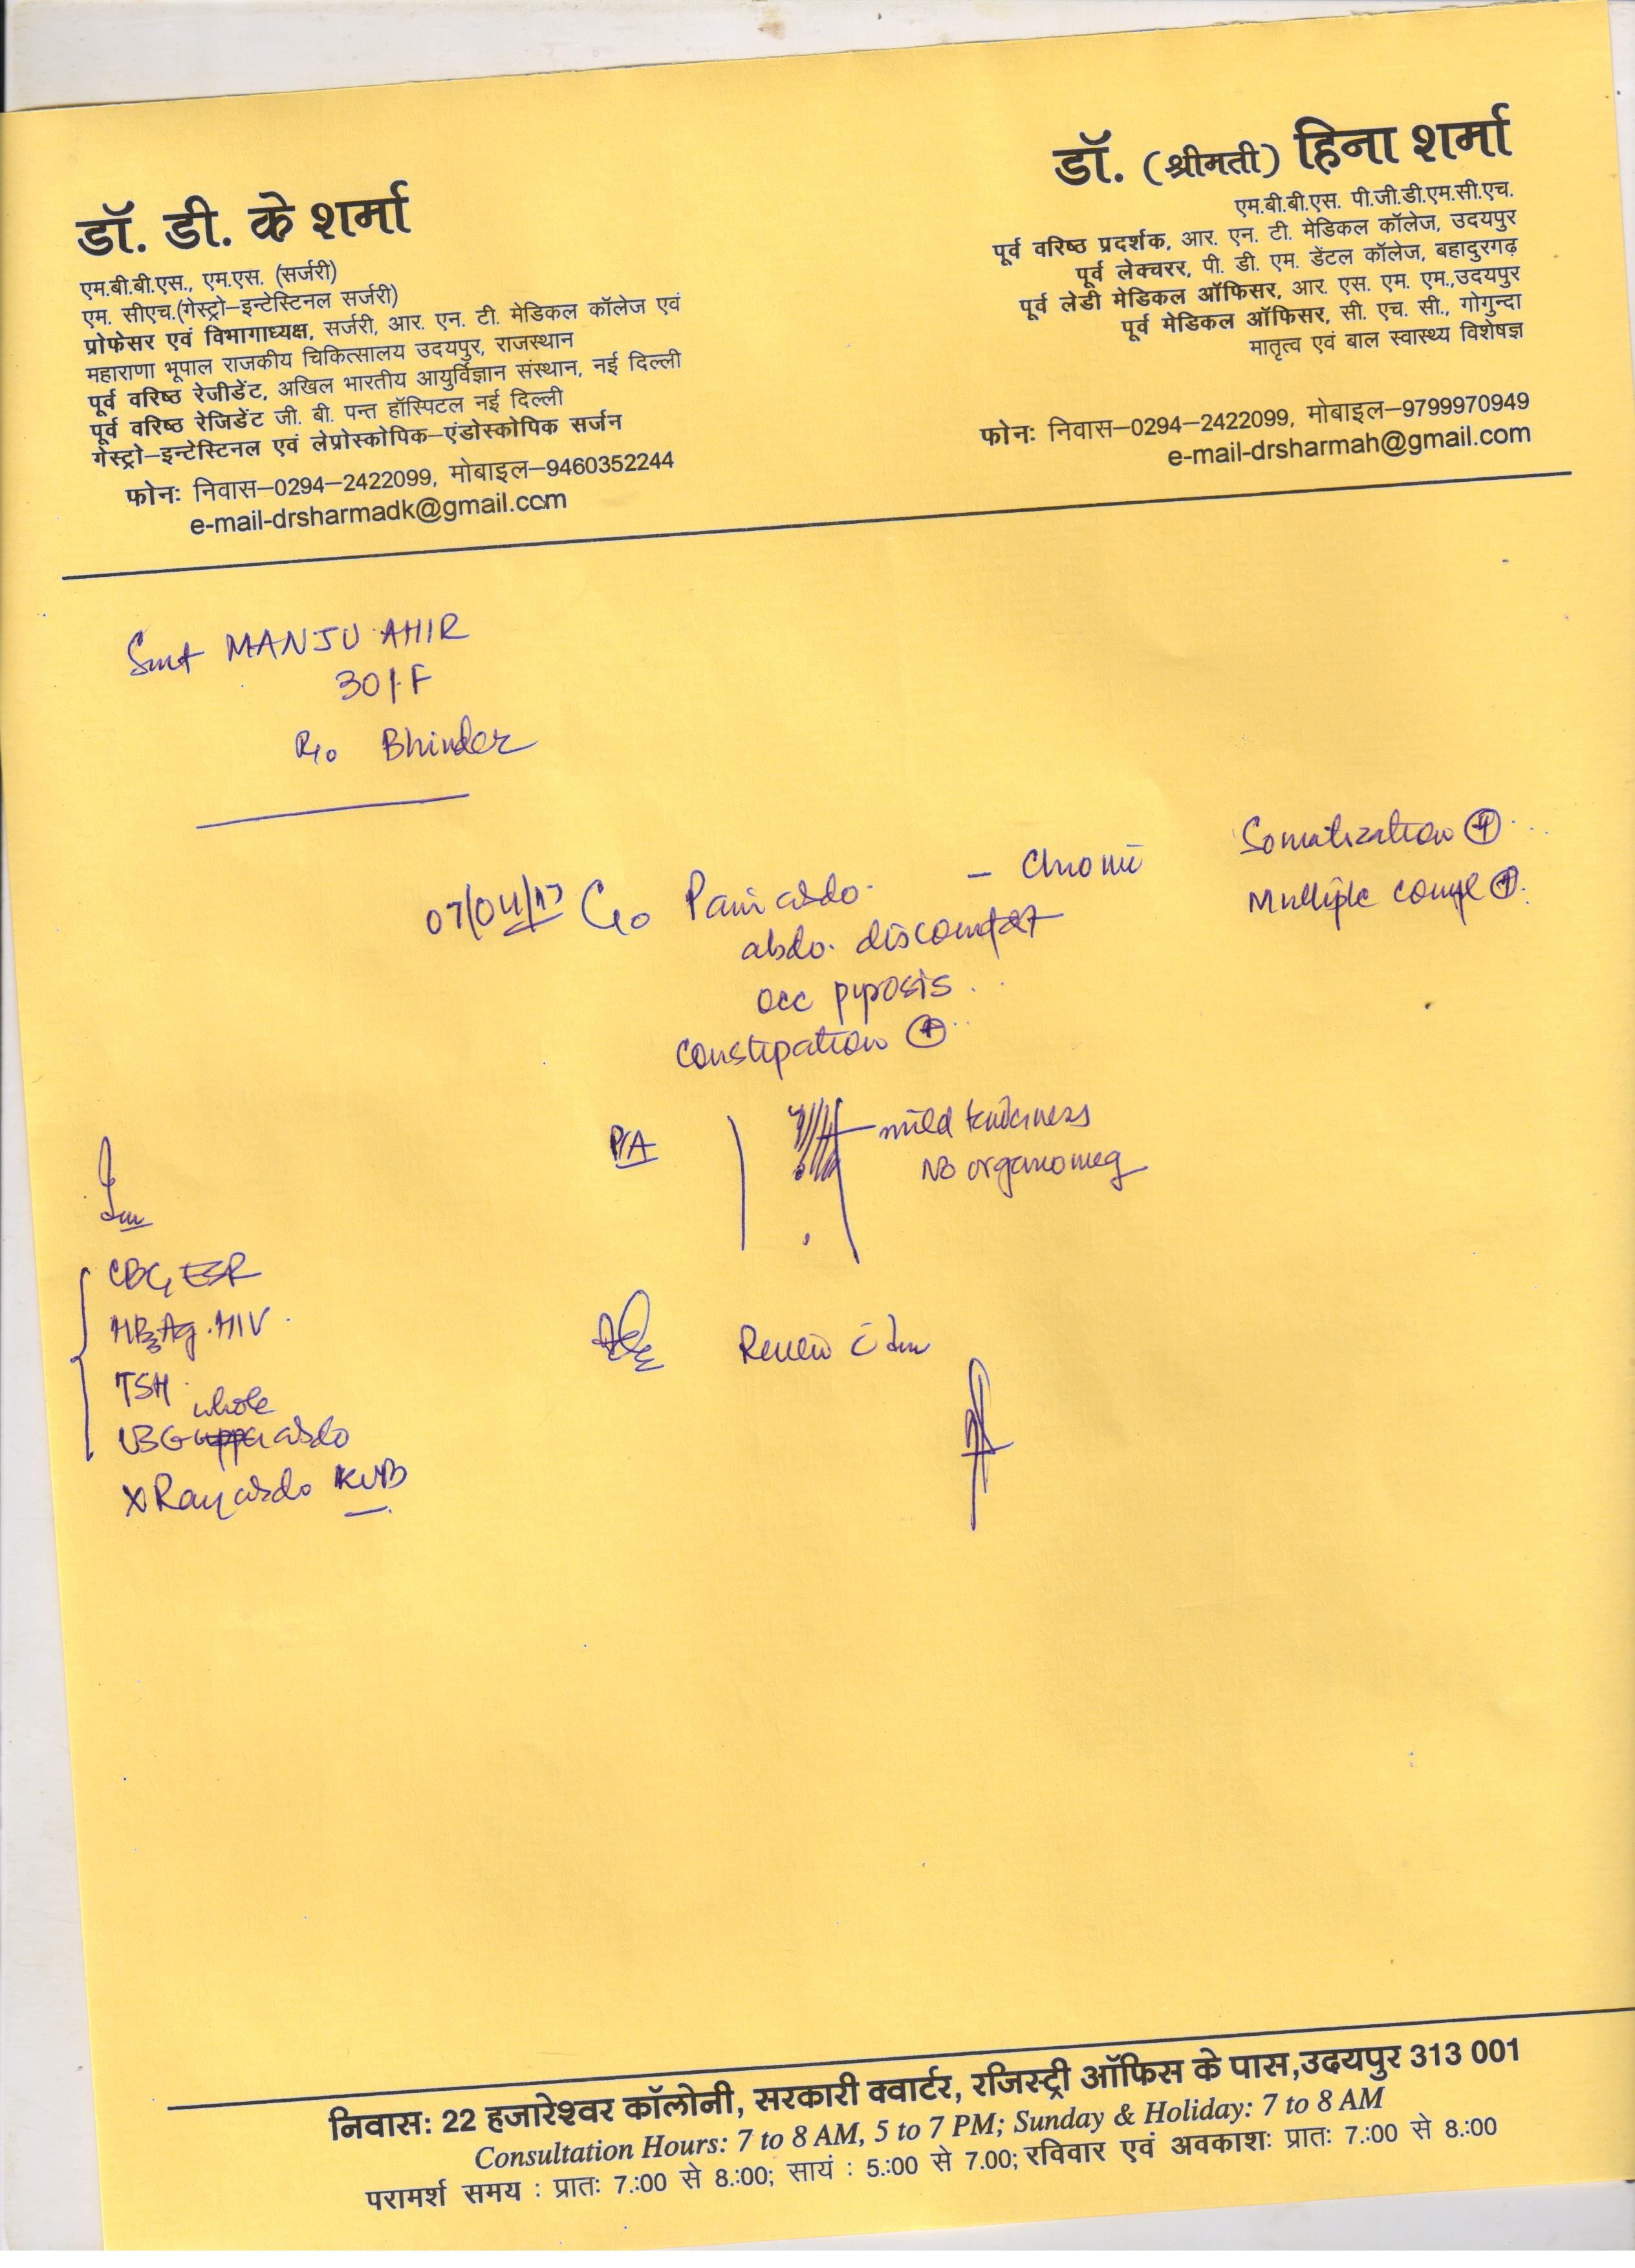 डॉ. डी. के शर्मा
एम.बी.बी.एस., एम.एस. (सर्जरी)
एम. सीएच.(गेस्ट्रो–इन्टेस्टिनल सर्जरी)
प्रोफेसर एवं विभागाध्यक्ष, सर्जरी, आर. एन. टी. मेडिकल कॉलेज एवं
महाराणा भूपाल राजकीय चिकित्सालय उदयपुर, राजस्थान
पूर्व वरिष्ठ रेजीडेंट, अखिल भारतीय आयुर्विज्ञान संस्थान, नई दिल्ली
पूर्व वरिष्ठ रेजिडेंट जी. बी. पन्त हॉस्पिटल नई दिल्ली
गेस्ट्रो–इन्टेस्टिनल एवं लेप्रोस्कोपिक–एंडोस्कोपिक सर्जन
फोनः निवास–0294–2422099, मोबाइल–9460352244
e-mail-drsharmadk@gmail.com
डॉ. (श्रीमती) हिना शर्मा
एम.बी.बी.एस. पी.जी.डी.एम.सी.एच.
पूर्व वरिष्ठ प्रदर्शक, आर. एन. टी. मेडिकल कॉलेज, उदयपुर
पूर्व लेक्चरर, पी. डी. एम. डेंटल कॉलेज, बहादुरगढ़
पूर्व लेडी मेडिकल ऑफिसर, आर. एस. एम. एम.,उदयपुर
पूर्व मेडिकल ऑफिसर, सी. एच. सी., गोगुन्दा
मातृत्व एवं बाल स्वास्थ्य विशेषज्ञ
फोनः निवास–0294–2422099, मोबाइल–9799970949
e-mail-drsharmah@gmail.com
Smt MANJU AHIR
30/F
R/o Bhinder
07/04/17 C/o Pain abdo. – Chronic
abdo. discomfort
occ pyrosis
Constipation ⊕
Somatization ⊕
Multiple compl ⊕
P/A
mild tenderness
No organomeg
Inv
CBC, ESR
HBsAg. HIV
TSH
whole
USG abdo
X Ray abdo KUB
Review c̄ Inv
निवासः 22 हजारेश्वर कॉलोनी, सरकारी क्वार्टर, रजिस्ट्री ऑफिस के पास,उदयपुर 313 001
Consultation Hours: 7 to 8 AM, 5 to 7 PM; Sunday & Holiday: 7 to 8 AM
परामर्श समय : प्रातः 7.:00 से 8.:00; सायं : 5.:00 से 7.00; रविवार एवं अवकाशः प्रातः 7.:00 से 8.:00